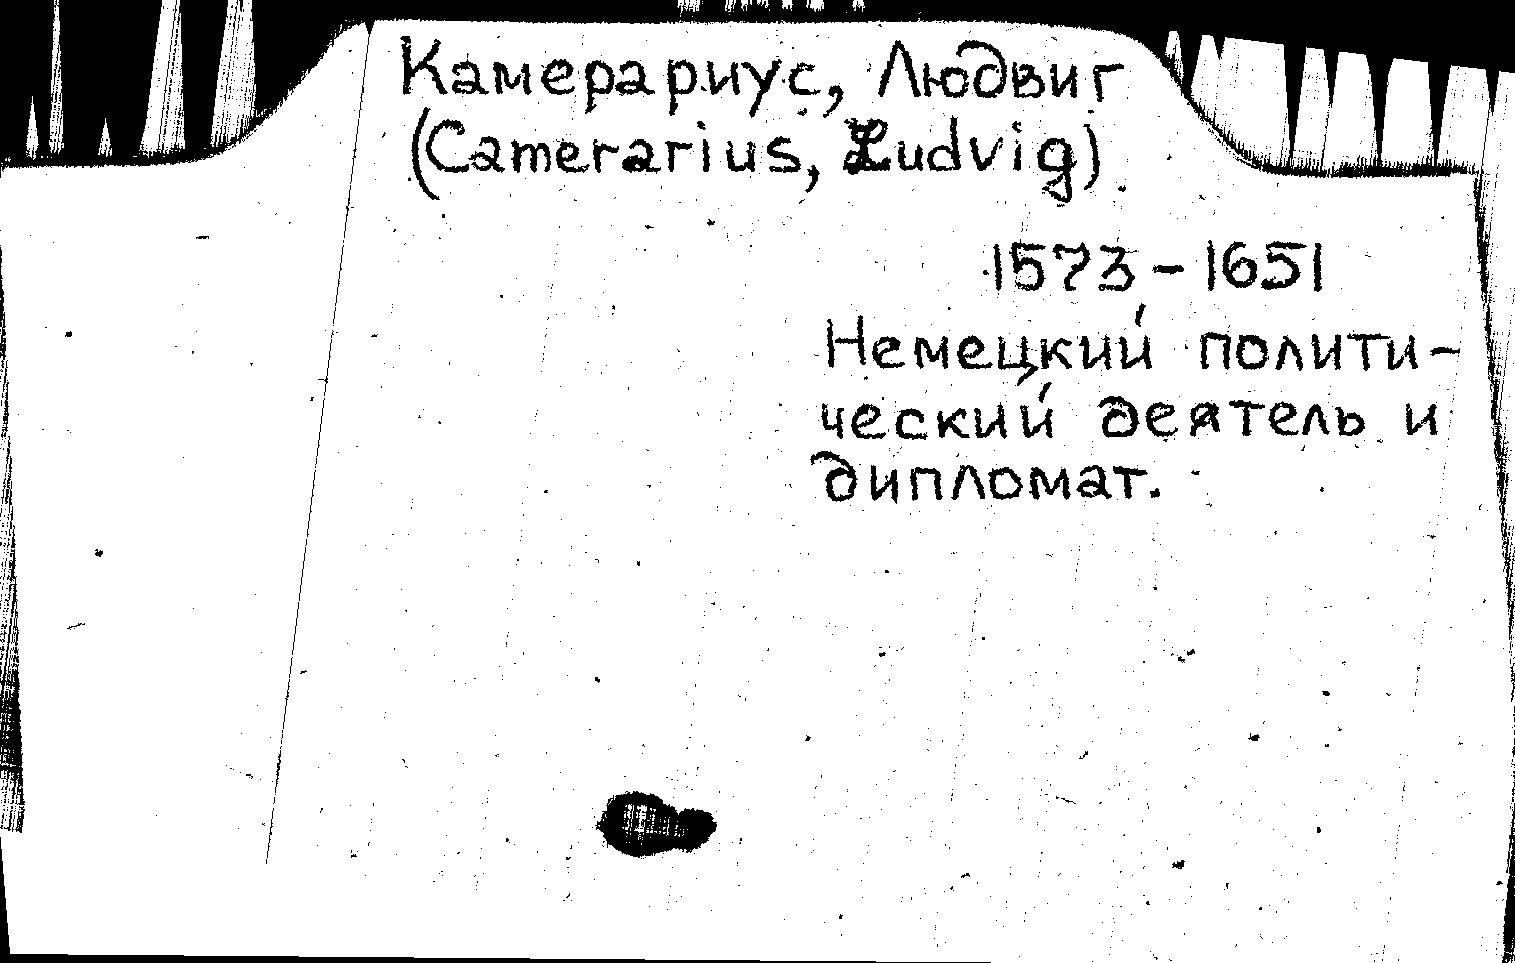 Камерариус, Людвиг
(Camerarius, Ludvig)
1573-1651
Немецкий полити-
ческий деятель и
дипломат.